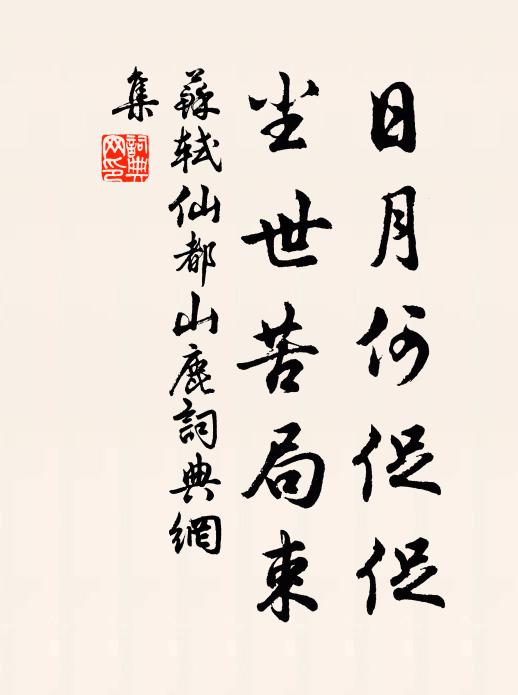 日月何促促
尘世苦局束
蘇軾仙都山鹿詞典網
集
詞典網印